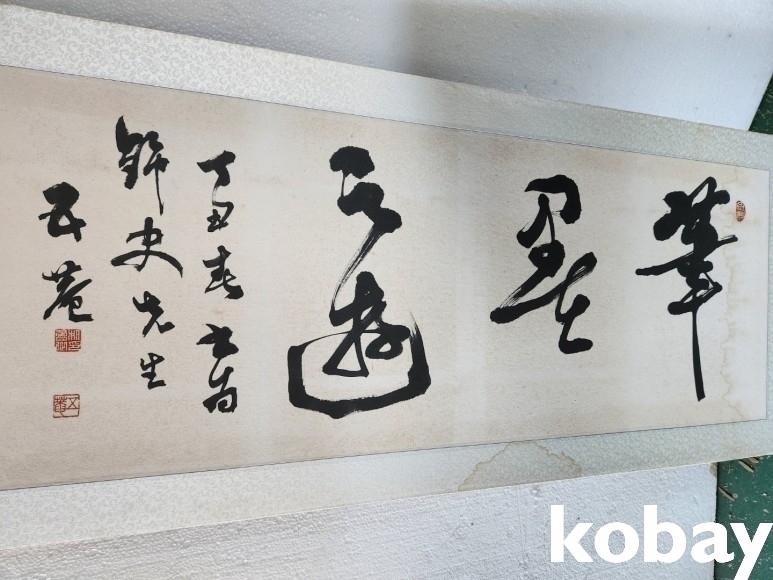 筆墨之遊
丁丑春書為
錦史先生
五菴
kobay